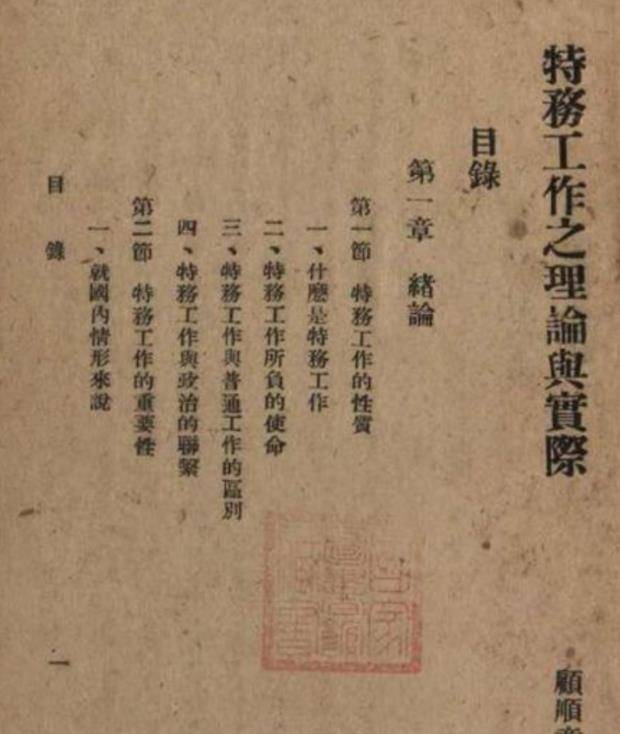 特務工作之理論與實際
顧順章
目錄
第一章 緒論
第一節 特務工作的性質
一、什麼是特務工作
二、特務工作所負的使命
三、特務工作與普通工作的區別
四、特務工作與政治的聯繫
第二節 特務工作的重要性
一、就國內情形來說
目 錄
一